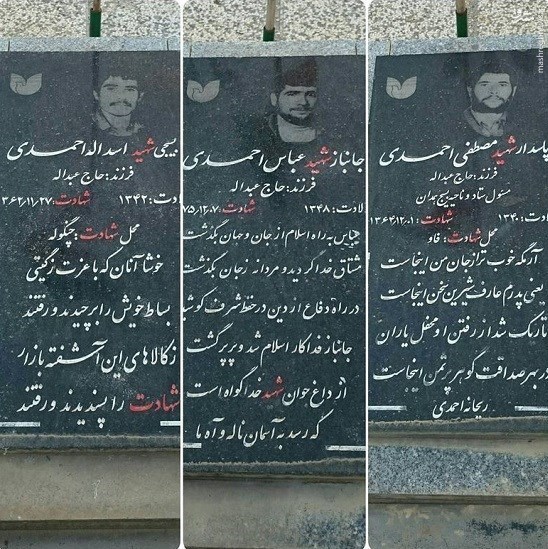 پاسدار شهید مصطفی احمدی
فرزند: حاج عبداله
مسئول ستاد و ناحیه بسیج همدان
لادت: ۱۳۴۰ شهادت: ۱۳۶۴/۱۲/۰۱
محل شهادت: فاو
آرامگه خوب تر از جان من اینجاست
یعنی پدرم عارف شیرین سخن اینجاست
تاریک شد از رفتن او محفل یاران
در بهر صداقت گوهر پر ثمن اینجاست
ریحانه احمدی
جانباز شهید عباس احمدی
فرزند: حاج عبداله
لادت: ۱۳۴۸ شهادت: ۷۵/۱۲/۰۷
عباس به راه اسلام از جان و جهان بگذشت
مشتاق خدا گردید و مردانه زجان بگذشت
در راه دفاع از دین در خط شرف کوشید
جانباز فداکار اسلام شد و پر پر گشت
از داغ جوان شهید خدا گواه است
که رسد به آسمان ناله و آه ما
بسیجی شهید اسداله احمدی
فرزند: حاج عبداله
لادت: ۱۳۴۲ شهادت: ۱۳۶۲/۱۱/۲۷
محل شهادت: چنگوله
خوشا آنان که با عزت ز گیتی
بساط خویش را برچیدند و رفتند
ز کالاهای این آشفته بازار
شهادت را پسندیدند و رفتند